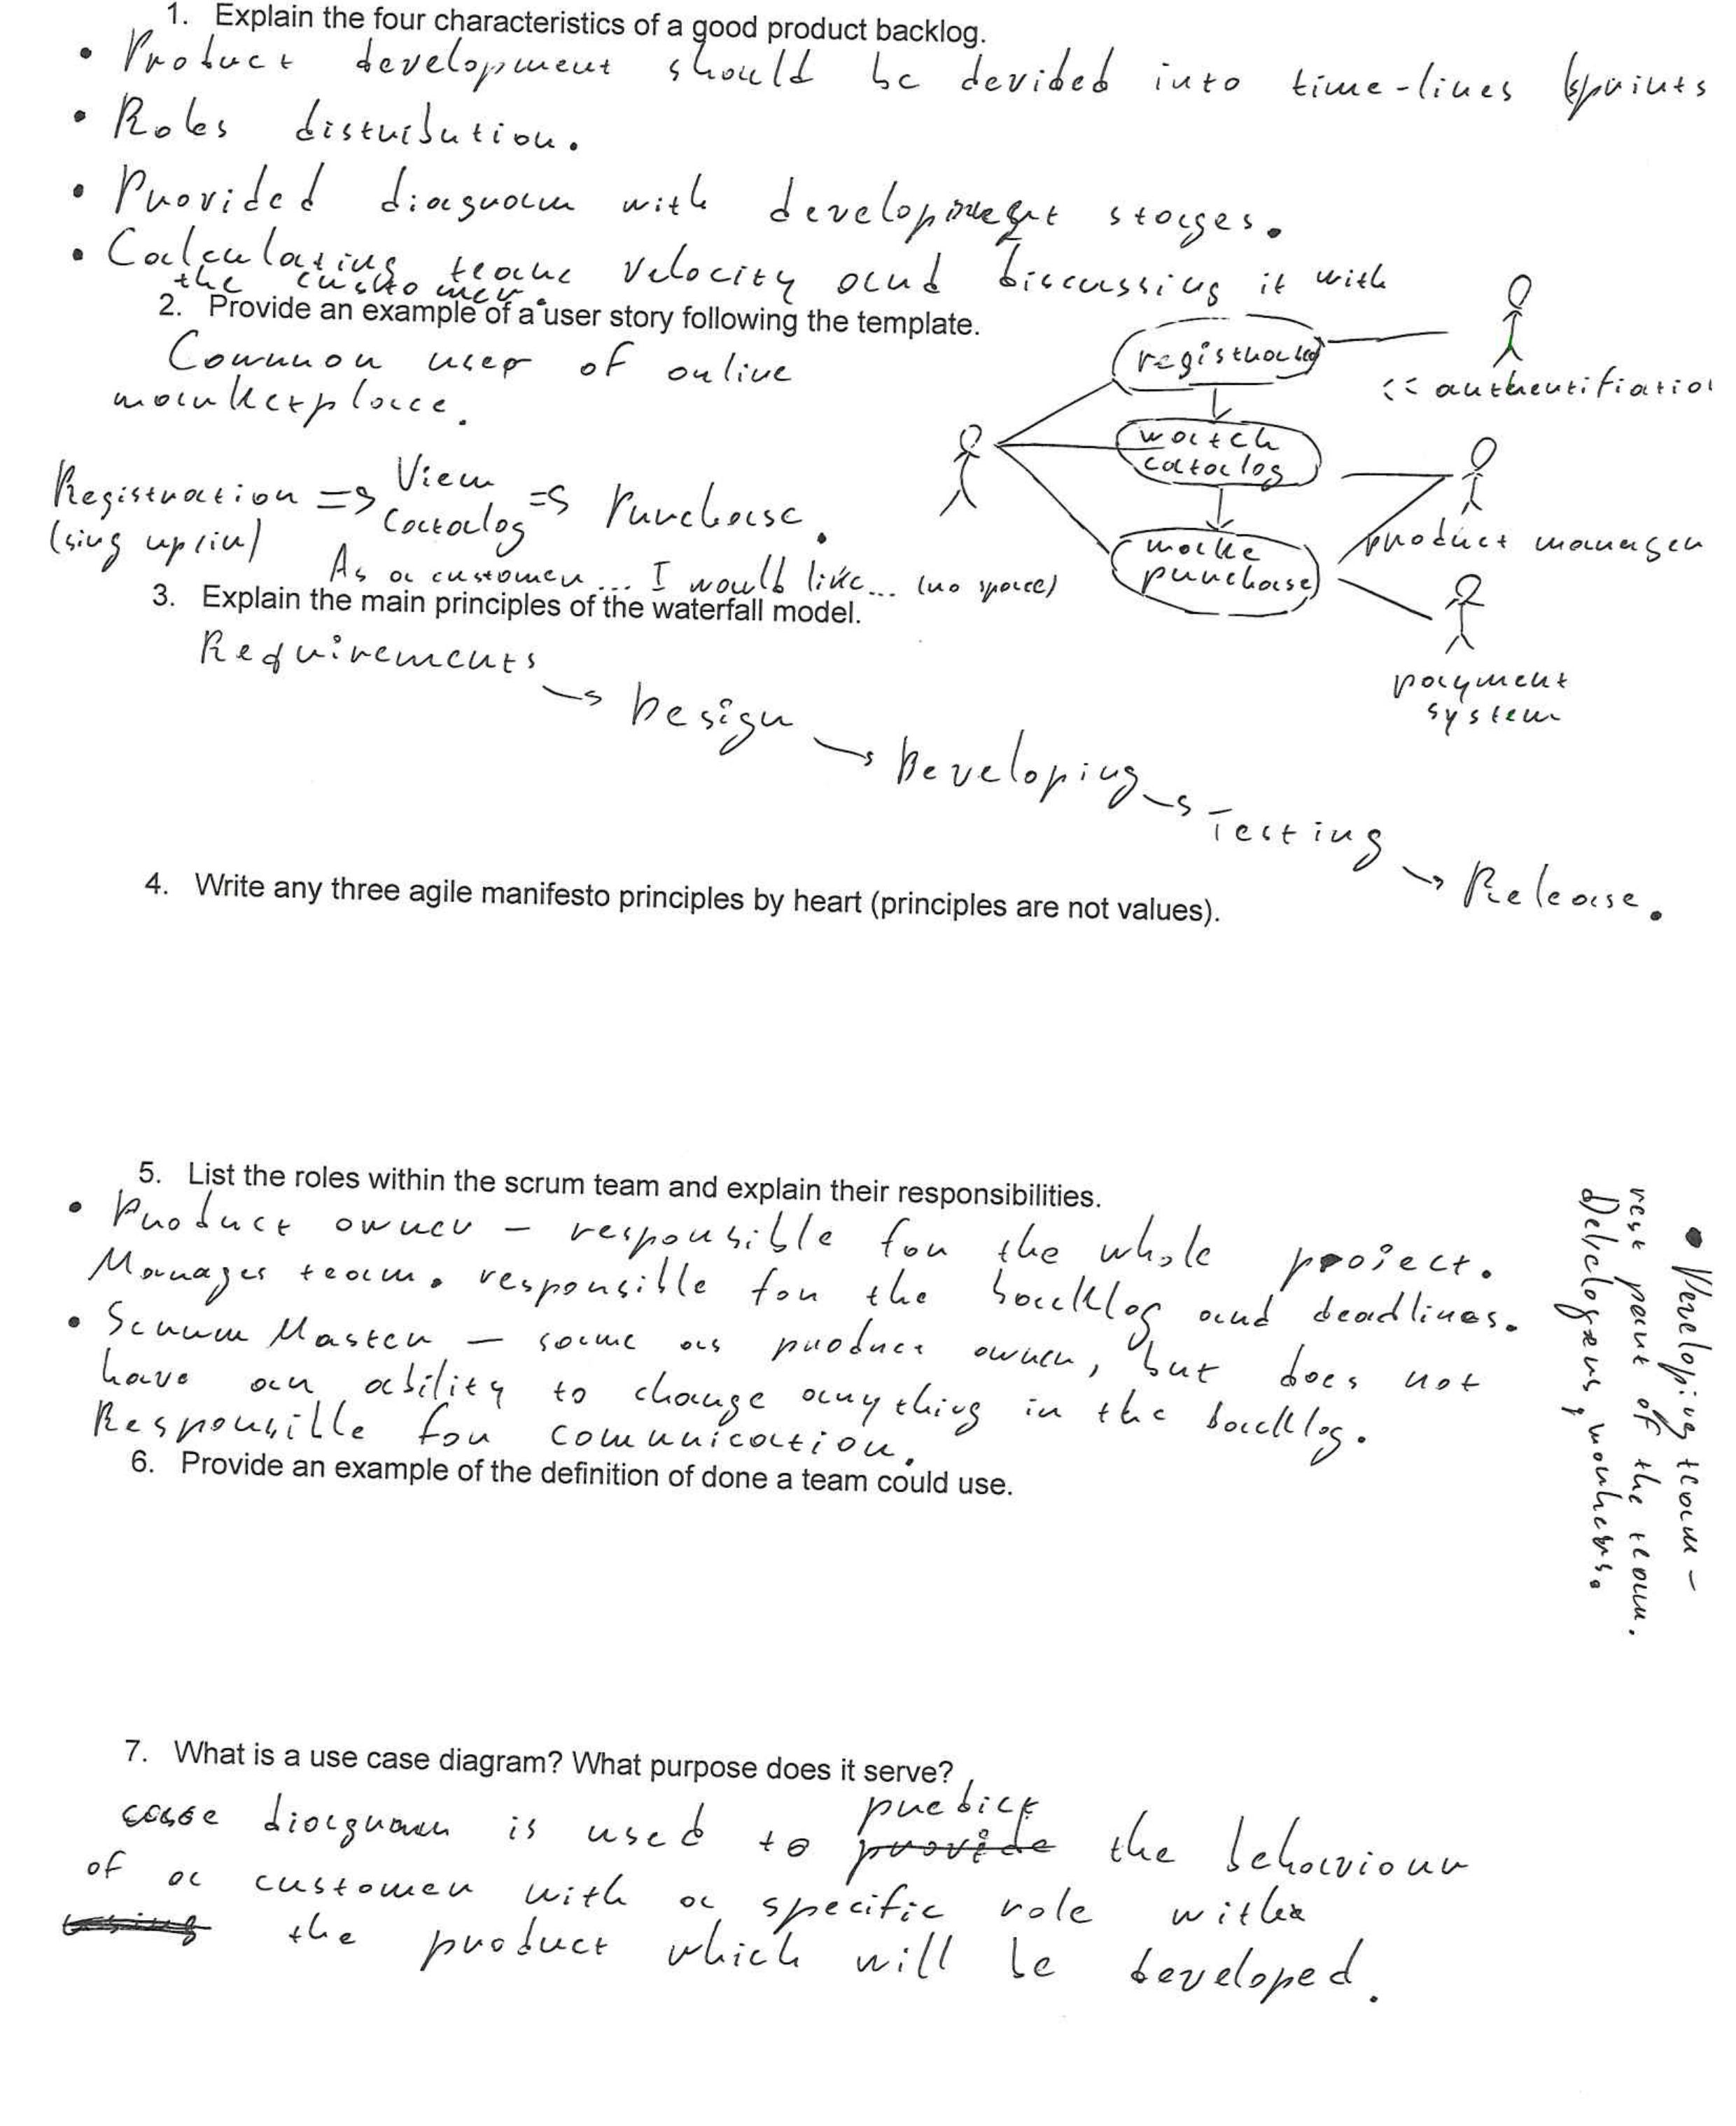 1. Explain the four characteristics of a good product backlog.
• Product development should be devided into time-lines (sprints
• Roles distribution.
• Provided diagram with development stages.
• Calculating team velocity and discussing it with
the customer.
2. Provide an example of a user story following the template.
Common user of online
marketplace.
Registration => View Catalog => Purchase.
(sing up/in)
As a customer... I would like... (no space)
registrated
<< authentifiatio
watch
catalog
product manager
make
purchase
payment
system
3. Explain the main principles of the waterfall model.
Requirements
→ Design
→ Developing
→ Testing
→ Release.
4. Write any three agile manifesto principles by heart (principles are not values).
5. List the roles within the scrum team and explain their responsibilities.
• Product owner – responsible for the whole project.
Manages team. responsible for the backlog and deadlines.
• Scrum Master – same as product owner, but does not
have an ability to change anything in the backlog.
Responsible for comunication.
• Developing team –
rest part of the team.
workers.
6. Provide an example of the definition of done a team could use.
7. What is a use case diagram? What purpose does it serve?
case diagram is used to provide predict the behaviour
of a customer with a specific role with
using the product which will be developed.